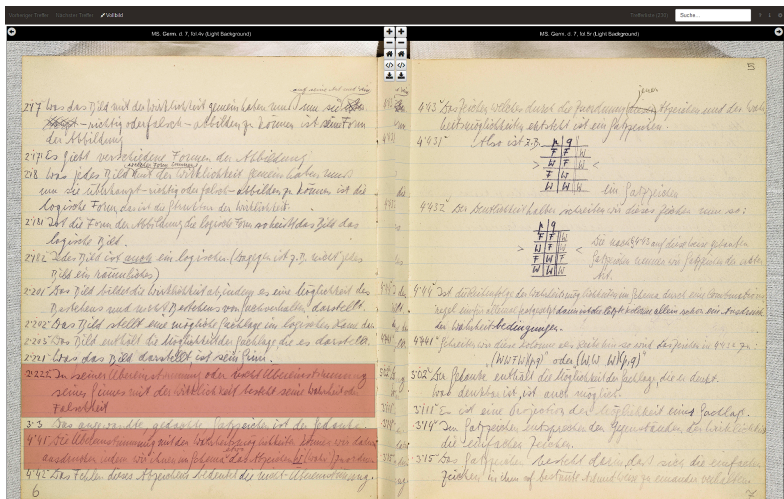 Vorheriger Treffer Nächster Treffer Vollbild Trefferliste (230) Suche...
MS. Germ. d. 7, fol.4v (Light Background)
2·17 Was das Bild mit der Wirklichkeit gemein haben muß um sie
– richtig oder falsch – abbilden zu können ist seine Form
der Abbildung
2·171 Es gibt verschiedene Formen der Abbildung
2·18 Was jedes Bild mit der Wirklichkeit gemein haben muß
um sie überhaupt – richtig oder falsch – abbilden zu können ist die
logische Form, das ist die Form der Wirklichkeit.
2·181 Ist die Form der Abbildung die logische Form so heißt das Bild das
logische Bild.
2·182 Jedes Bild ist auch ein logisches (Dagegen ist z.B. nicht jedes
Bild ein räumliches)
2·201 Das Bild bildet die Wirklichkeit ab, indem es eine Möglichkeit des
Bestehens und Nicht-Bestehens von Sachverhalten darstellt.
2·202 Das Bild stellt eine mögliche Sachlage im logischen Raume dar
2·203 Das Bild enthält die Möglichkeit der Sachlage die es darstellt.
2·221 Was das Bild darstellt, ist sein Sinn.
2·222 In seiner Übereinstimmung oder Nicht-Übereinstimmung
seines Sinnes mit der Wirklichkeit besteht seine Wahrheit oder
Falschheit
3·5 Das angewandte, gedachte Satzzeichen ist der Gedanke.
4·41 Die Übereinstimmung mit den Wahrheitsmöglichkeiten können wir dadurch
ausdrücken indem wir ihnen im Schema das Abzeichen W (wahr) zuordnen
4·42 Das Fehlen dieses Abzeichens bedeutet die Nicht-Übereinstimmung.
6
MS. Germ. d. 7, fol.5r (Light Background)
5
jener
4·43 Das Zeichen welches durch die Zuordnung Abzeichen und der Wahr-
heitsmöglichkeiten entsteht ist ein Satzzeichen.
4·431 Also ist z.B.
p q
F F W
W F W
F W
W W W
ein Satzzeichen
4·432 Der Deutlichkeit halber schreiben wir dieses Zeichen nun so:
p q
F F W
W F
F W W
W W W
Die nach 4·43 auf diese Weise
Satzzeichen nennen wir Satzzeichen der
Art.
4·44 Ist die Reihenfolge der Wahrheitsmöglichkeiten im Schema durch eine Kombinations-
regel ein für allemal festgesetzt dann ist die letzte Kolonne allein schon ein Ausdruck
der Wahrheitsbedingungen.
4·441 Schreiben wir diese Kolonne als Reihe hin so wird das Zeichen in 4·432 zu:
3·02 Der Gedanke enthält die Möglichkeit der Sachlage, die er denkt.
Was denkbar ist, ist auch möglich.
3·14 Im Satzzeichen entsprechen den Gegenständen der Wirklichkeit
die einfachen Zeichen.
3·15 Das Satzzeichen besteht darin, daß sich die einfachen
Zeichen in ihm auf bestimmte Art und Weise zu einander verhalten.
7